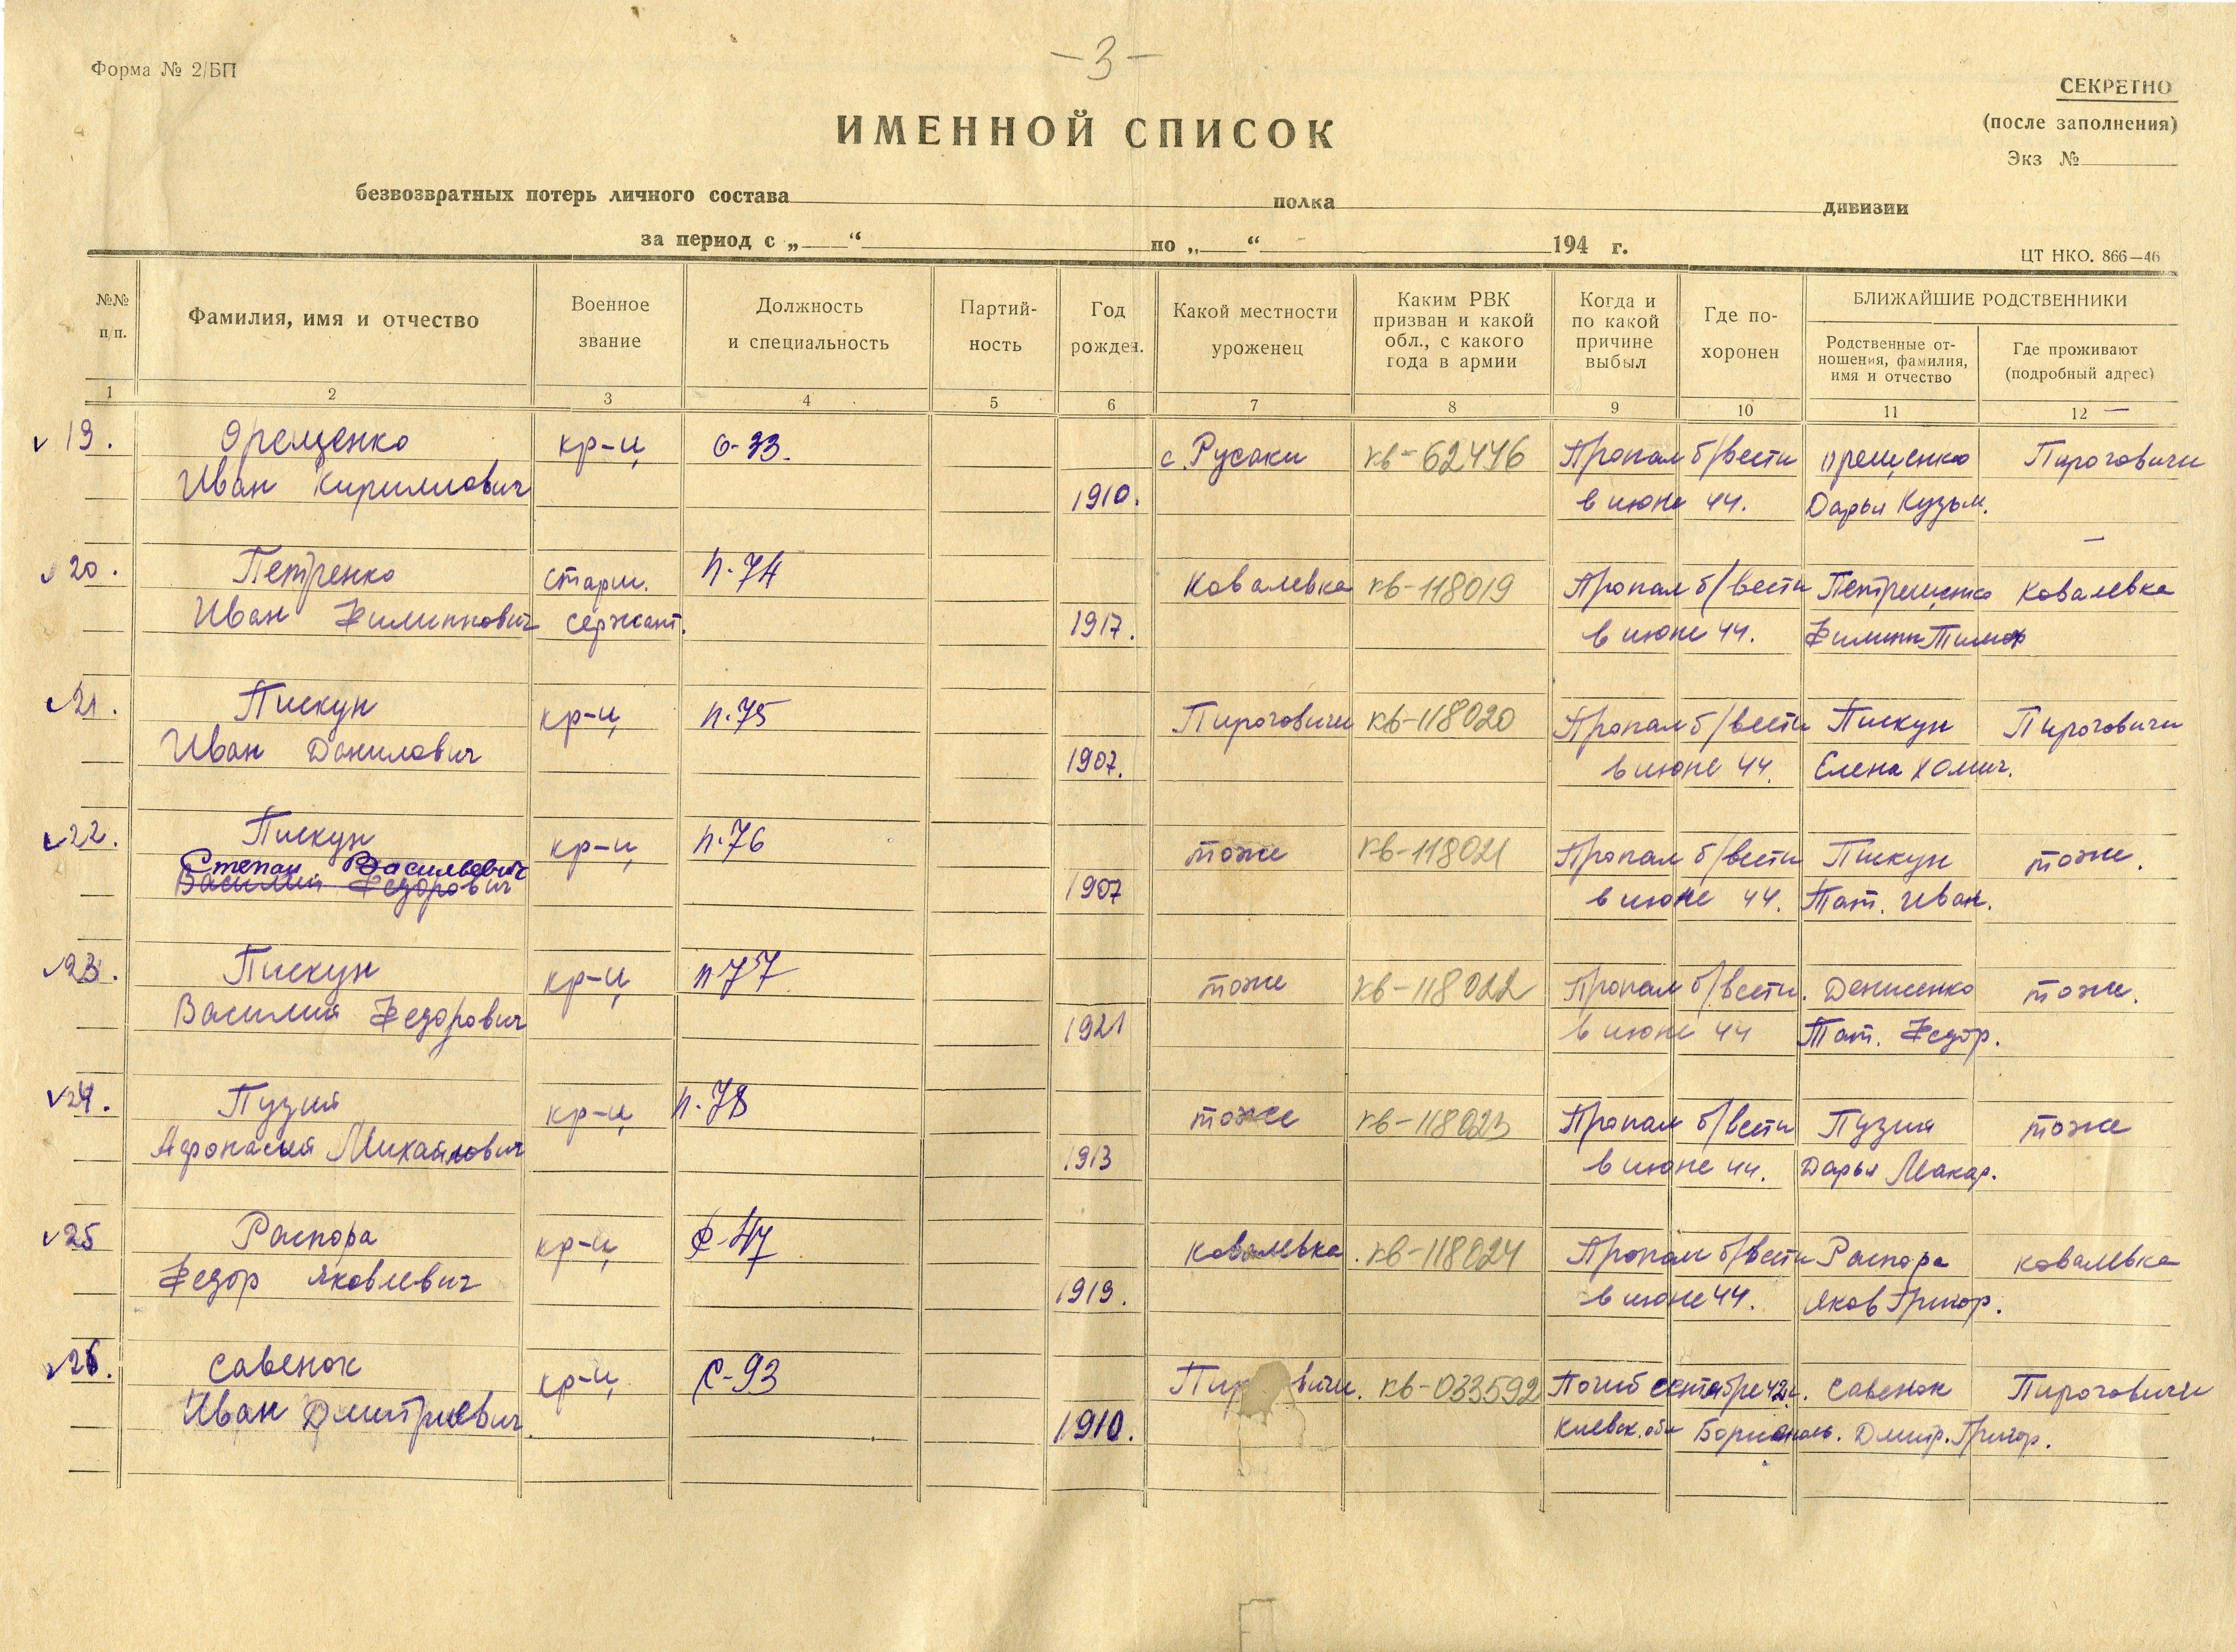 -3-
Форма № 2/БП
СЕКРЕТНО
(после заполнения)
Экз №
ИМЕННОЙ СПИСОК
безвозвратных потерь личного состава полка дивизии
за период с „ “ по „ “ 194 г.
ЦТ НКО. 866—46
№№ п/п.
Фамилия, имя и отчество
Военное звание
Должность и специальность
Партий-ность
Год рожден.
Какой местности уроженец
Каким РВК призван и какой обл., с какого года в армии
Когда и по какой причине выбыл
Где по-хоронен
БЛИЖАЙШИЕ РОДСТВЕННИКИ
Родственные от-ношения, фамилия, имя и отчество
Где проживают (подробный адрес)
1 2 3 4 5 6 7 8 9 10 11 12 —
v 19. Орещенко кр-ц О-33. с. Русаки кв-62476 Пропал б/вести Орещенко Пироговичи
Иван Кириллович 1910. в июне 44. Дарья Кузьм.
v 20. Петренко старш. п-74 Ковалевка кв-118019 Пропал б/вести Петрещенко Ковалевка
Иван Филиппович сержант. 1917. в июне 44. Филипп Тимоф
v 21. Пискун кр-ц п-75 Пироговичи кв-118020 Пропал б/вести Пискун Пироговичи
Иван Данилович 1907. в июне 44. Елена Хомич.
v 22. Пискун кр-ц п-76 тоже кв-118021 Пропал б/вести Пискун тоже.
Степан Васильевич
Василий Федорович 1907 в июне 44. Тат. Иван.
v 23. Пискун кр-ц п77 тоже кв-118022 Пропал б/вести. Денисенко тоже.
Василий Федорович 1921 в июне 44 Тат. Федор.
v 24. Пузий кр-ц п-78 тоже кв-118023 Пропал б/вести Пузий тоже
Афонасий Михайлович 1913 в июне 44. Дарья Макар.
v 25 Распора кр-ц Ковалевка. кв-118024 Пропал б/вести Распора Ковалевка
Федор Яковлевич 1919. в июне 44. Яков Григор.
v 26. Савенок кр-ц С-93 Пир вичи. кв-033592 Погиб сентябре 42г. Савенок Пироговичи
Иван Дмитриевич. 1910. Киевск. обл Борисполь. Дмитр. Григор.